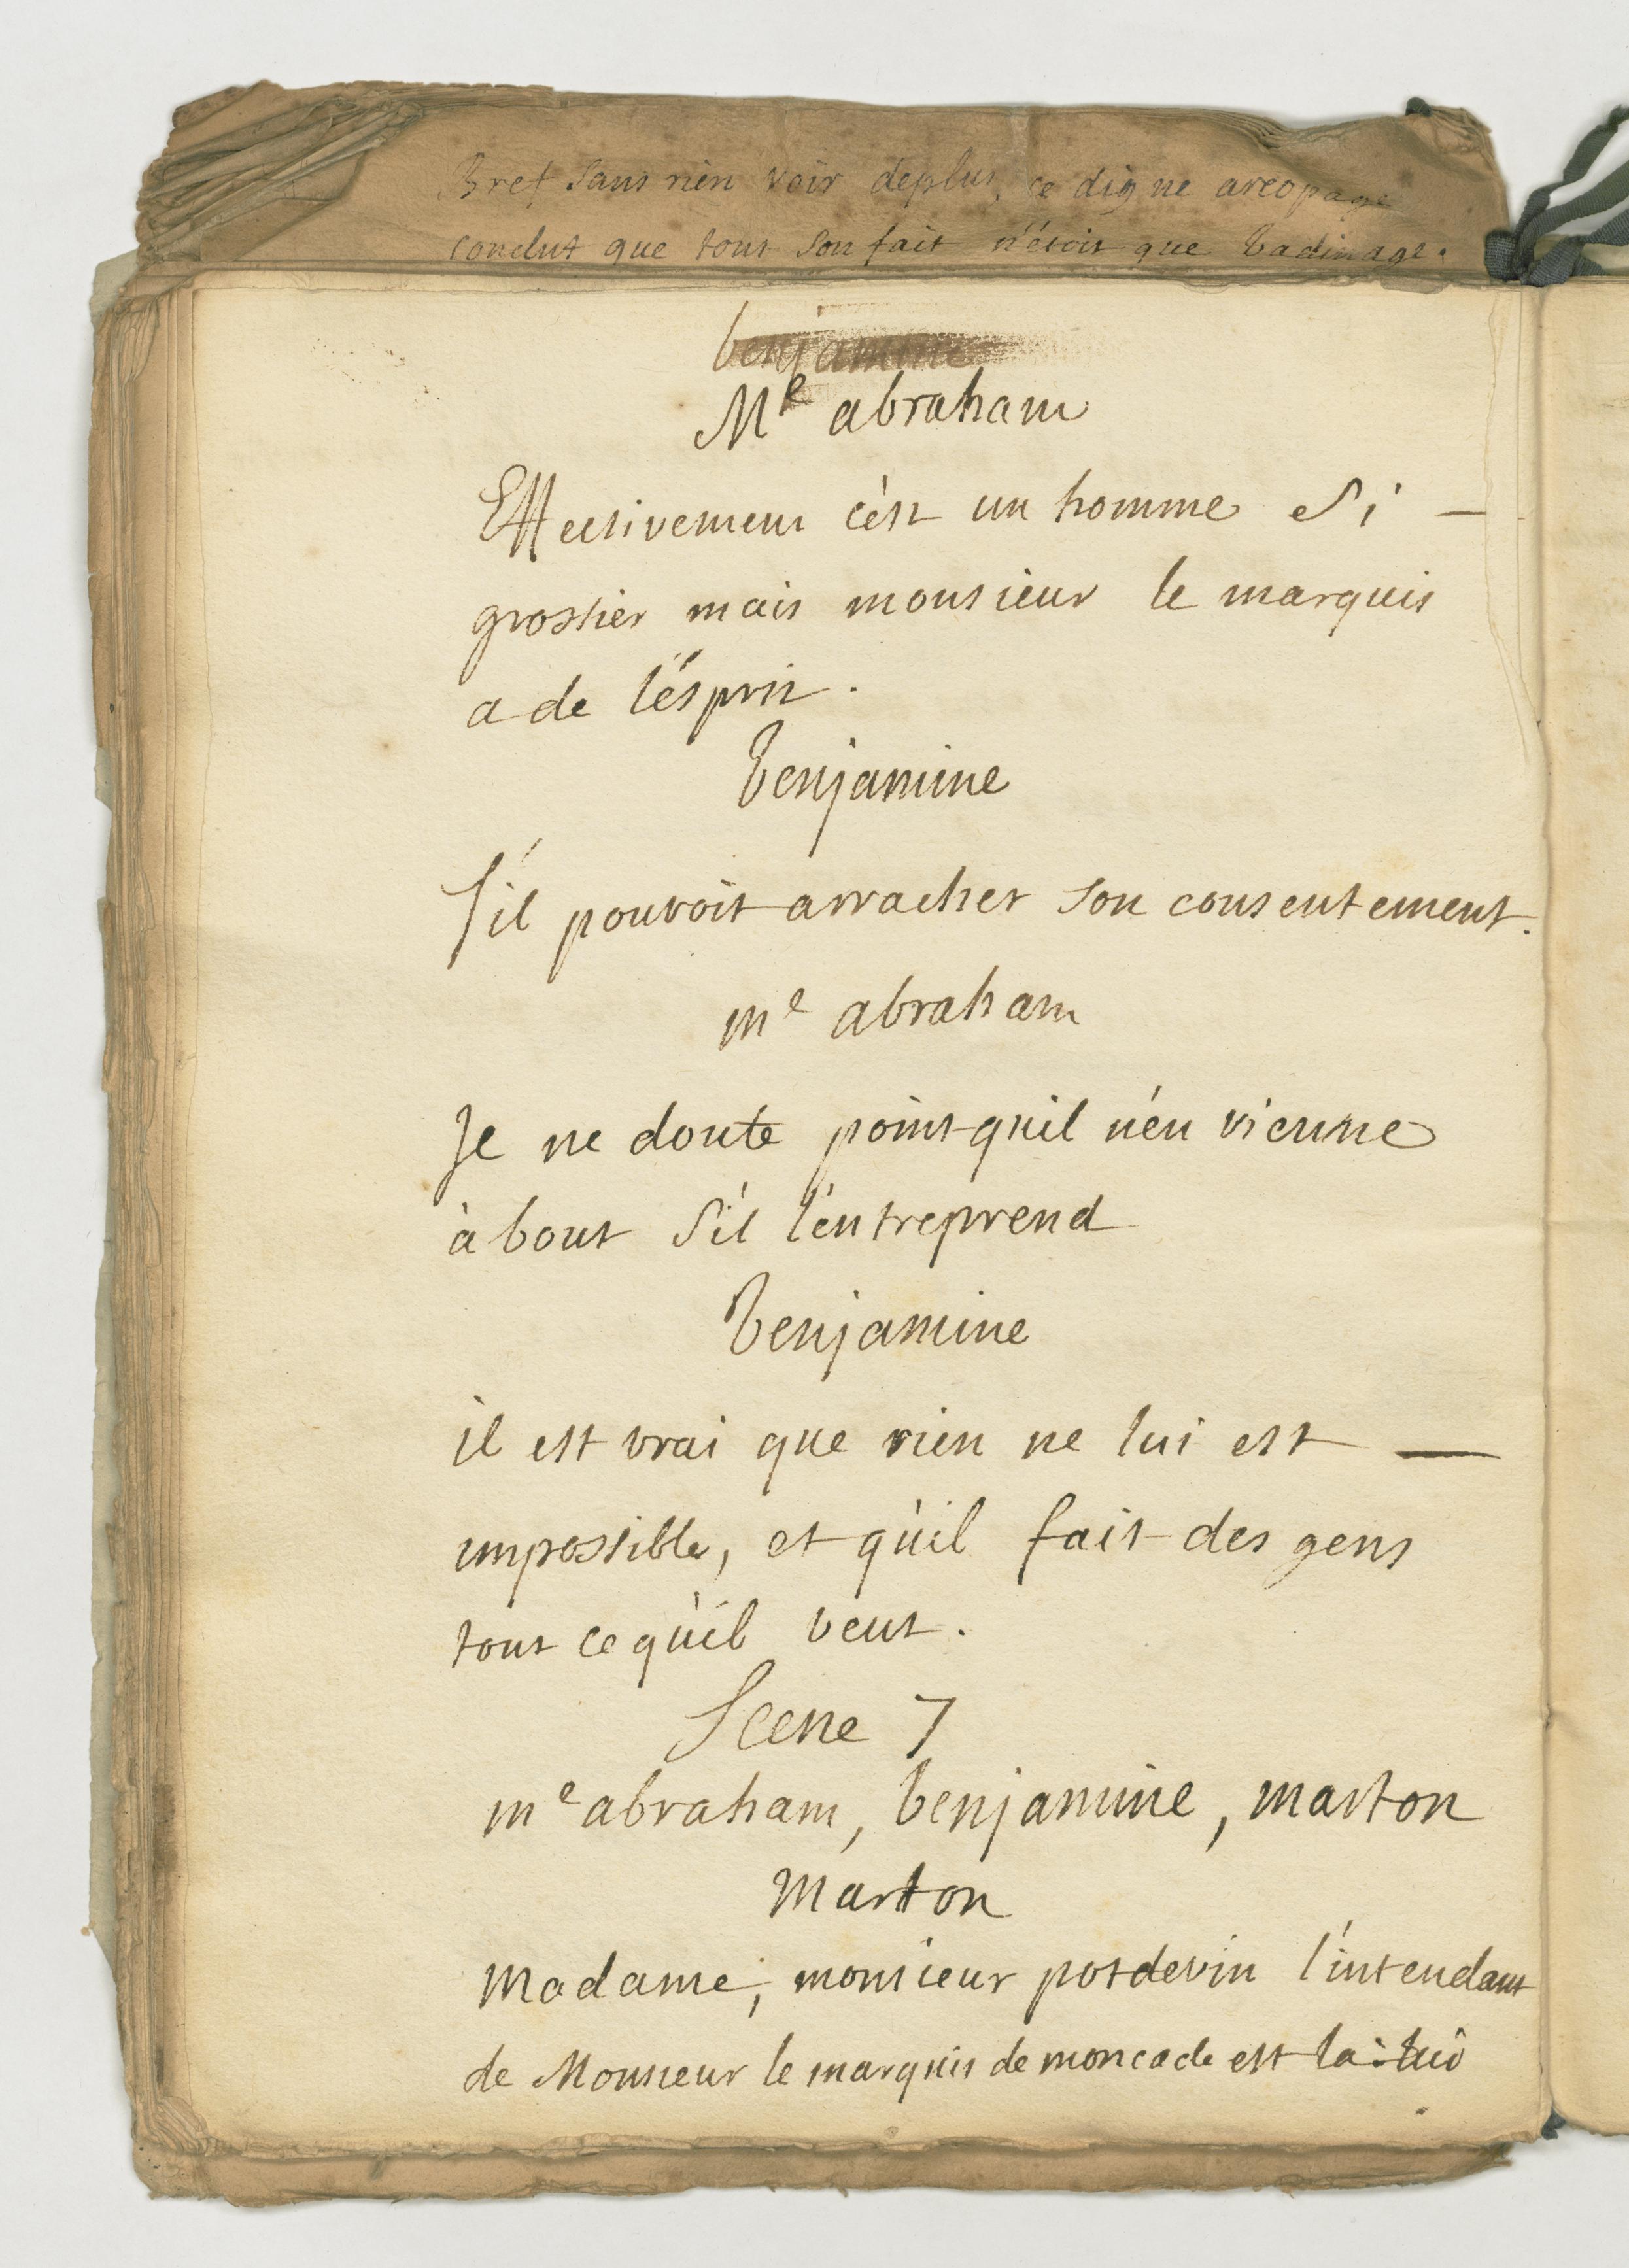 Bref sans rien voir deplus, ce digne areopage
conclut que tout son fait n'étoit que badinage.
benjamine
Me abraham
Effectivement c'est un homme si —
grossier mais monsieur le marquis
a de l'ésprit.
benjamine
S'il pouvoit arracher son consentement.
me abraham
Je ne doute point qu'il n'en vienne
à bout s'il l'entreprend
benjamine
il est vrai que rien ne lui est —
impossible, et qu'il fait des gens
tout ce qu'il veut.
Scene 7
me abraham, benjamine, marton
Marton
Madame, monsieur potdevin l'intendant
de Monsieur le marquis de moncade est la